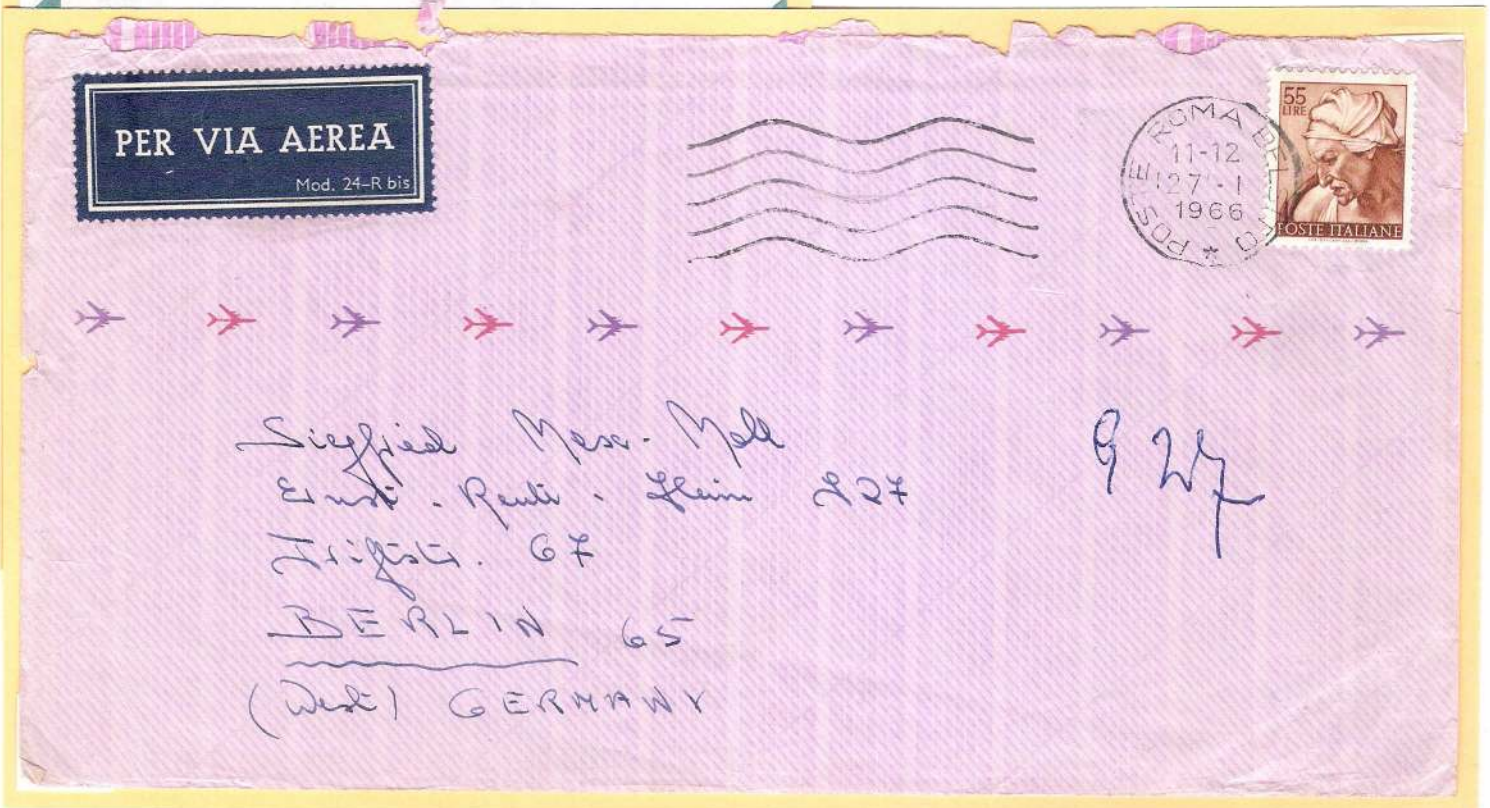 PER VIA AEREA
Mod. 24-R bis
POSTE ROMA
11-12
27-1
1966
55
LIRE
POSTE ITALIANE
Siegfried
Ernst - Reuter - Heim 227
Triftstr. 67
BERLIN 65
(West) GERMANY